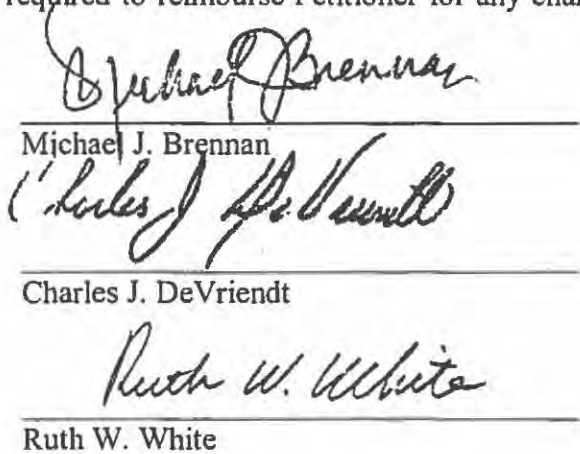 required to reimburse Petitioner for any
Michael J Brennan
Michael J. Brennan
Charles J DeVriendt
Charles J. DeVriendt
Ruth W. White
Ruth W. White